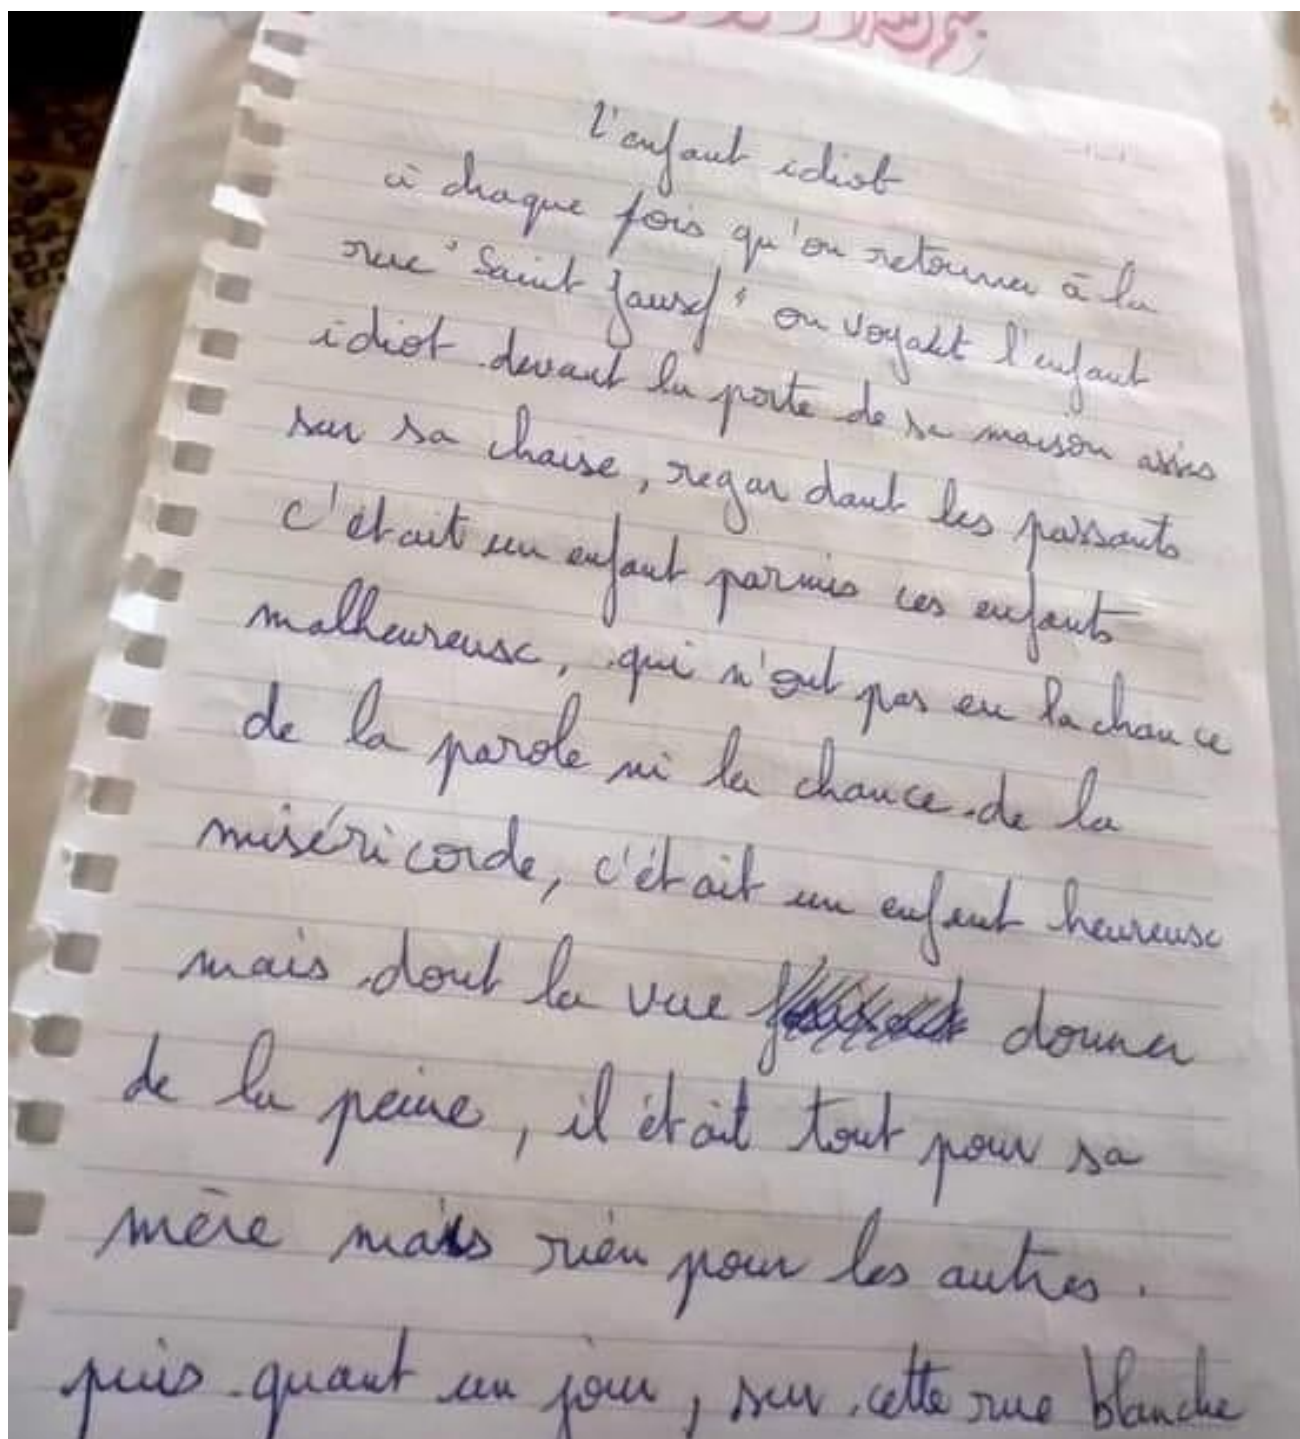 l'enfant idiot
à chaque fois qu'on retourner à la
rue "Saint Jausef" on voyait l'enfant
idiot devant la porte de sa maison assis
sur sa chaise, regardant les passants
c'était un enfant parmis ces enfants
malheureuse, qui n'ont pas eu la chance
de la parole ni la chance de la
miséricorde, c'était un enfant heureuse
mais dont la vue donner
de la peine, il était tout pour sa
mère mais rien pour les autres.
puis quant un jour, sur cette rue blanche